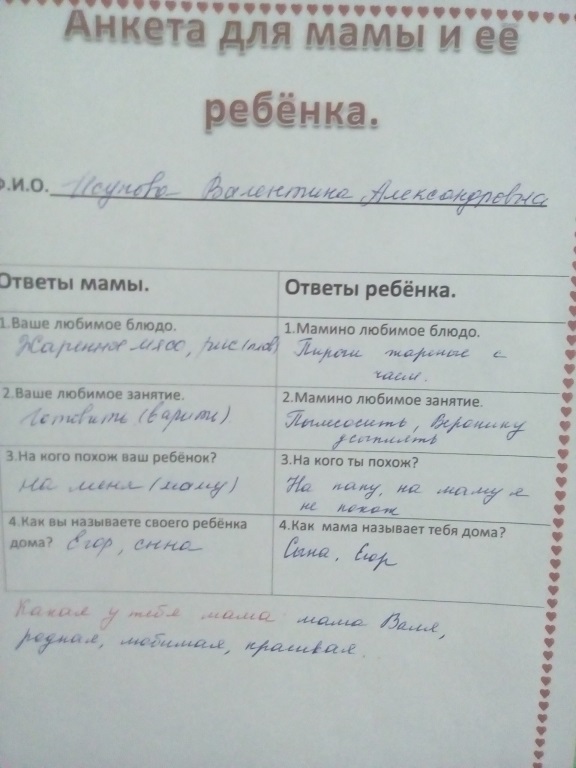 Анкета для мамы и её
ребёнка.
Ф.И.О. Исупова Валентина Александровна
Ответы мамы.
Ответы ребёнка.
1.Ваше любимое блюдо.
Жаренное мясо, рис (плов)
1.Мамино любимое блюдо.
Пироги жареные с
чаем.
2.Ваше любимое занятие.
Готовить (варить)
2.Мамино любимое занятие.
Пылесосить, Веронику
усыплять
3.На кого похож ваш ребёнок?
На меня (маму)
3.На кого ты похож?
На папу, на маму я
не похож
4.Как вы называете своего ребёнка
дома? Егор, сына
4.Как мама называет тебя дома?
Сына, Егор
Какая у тебя мама: мама Валя,
родная, любимая, красивая.